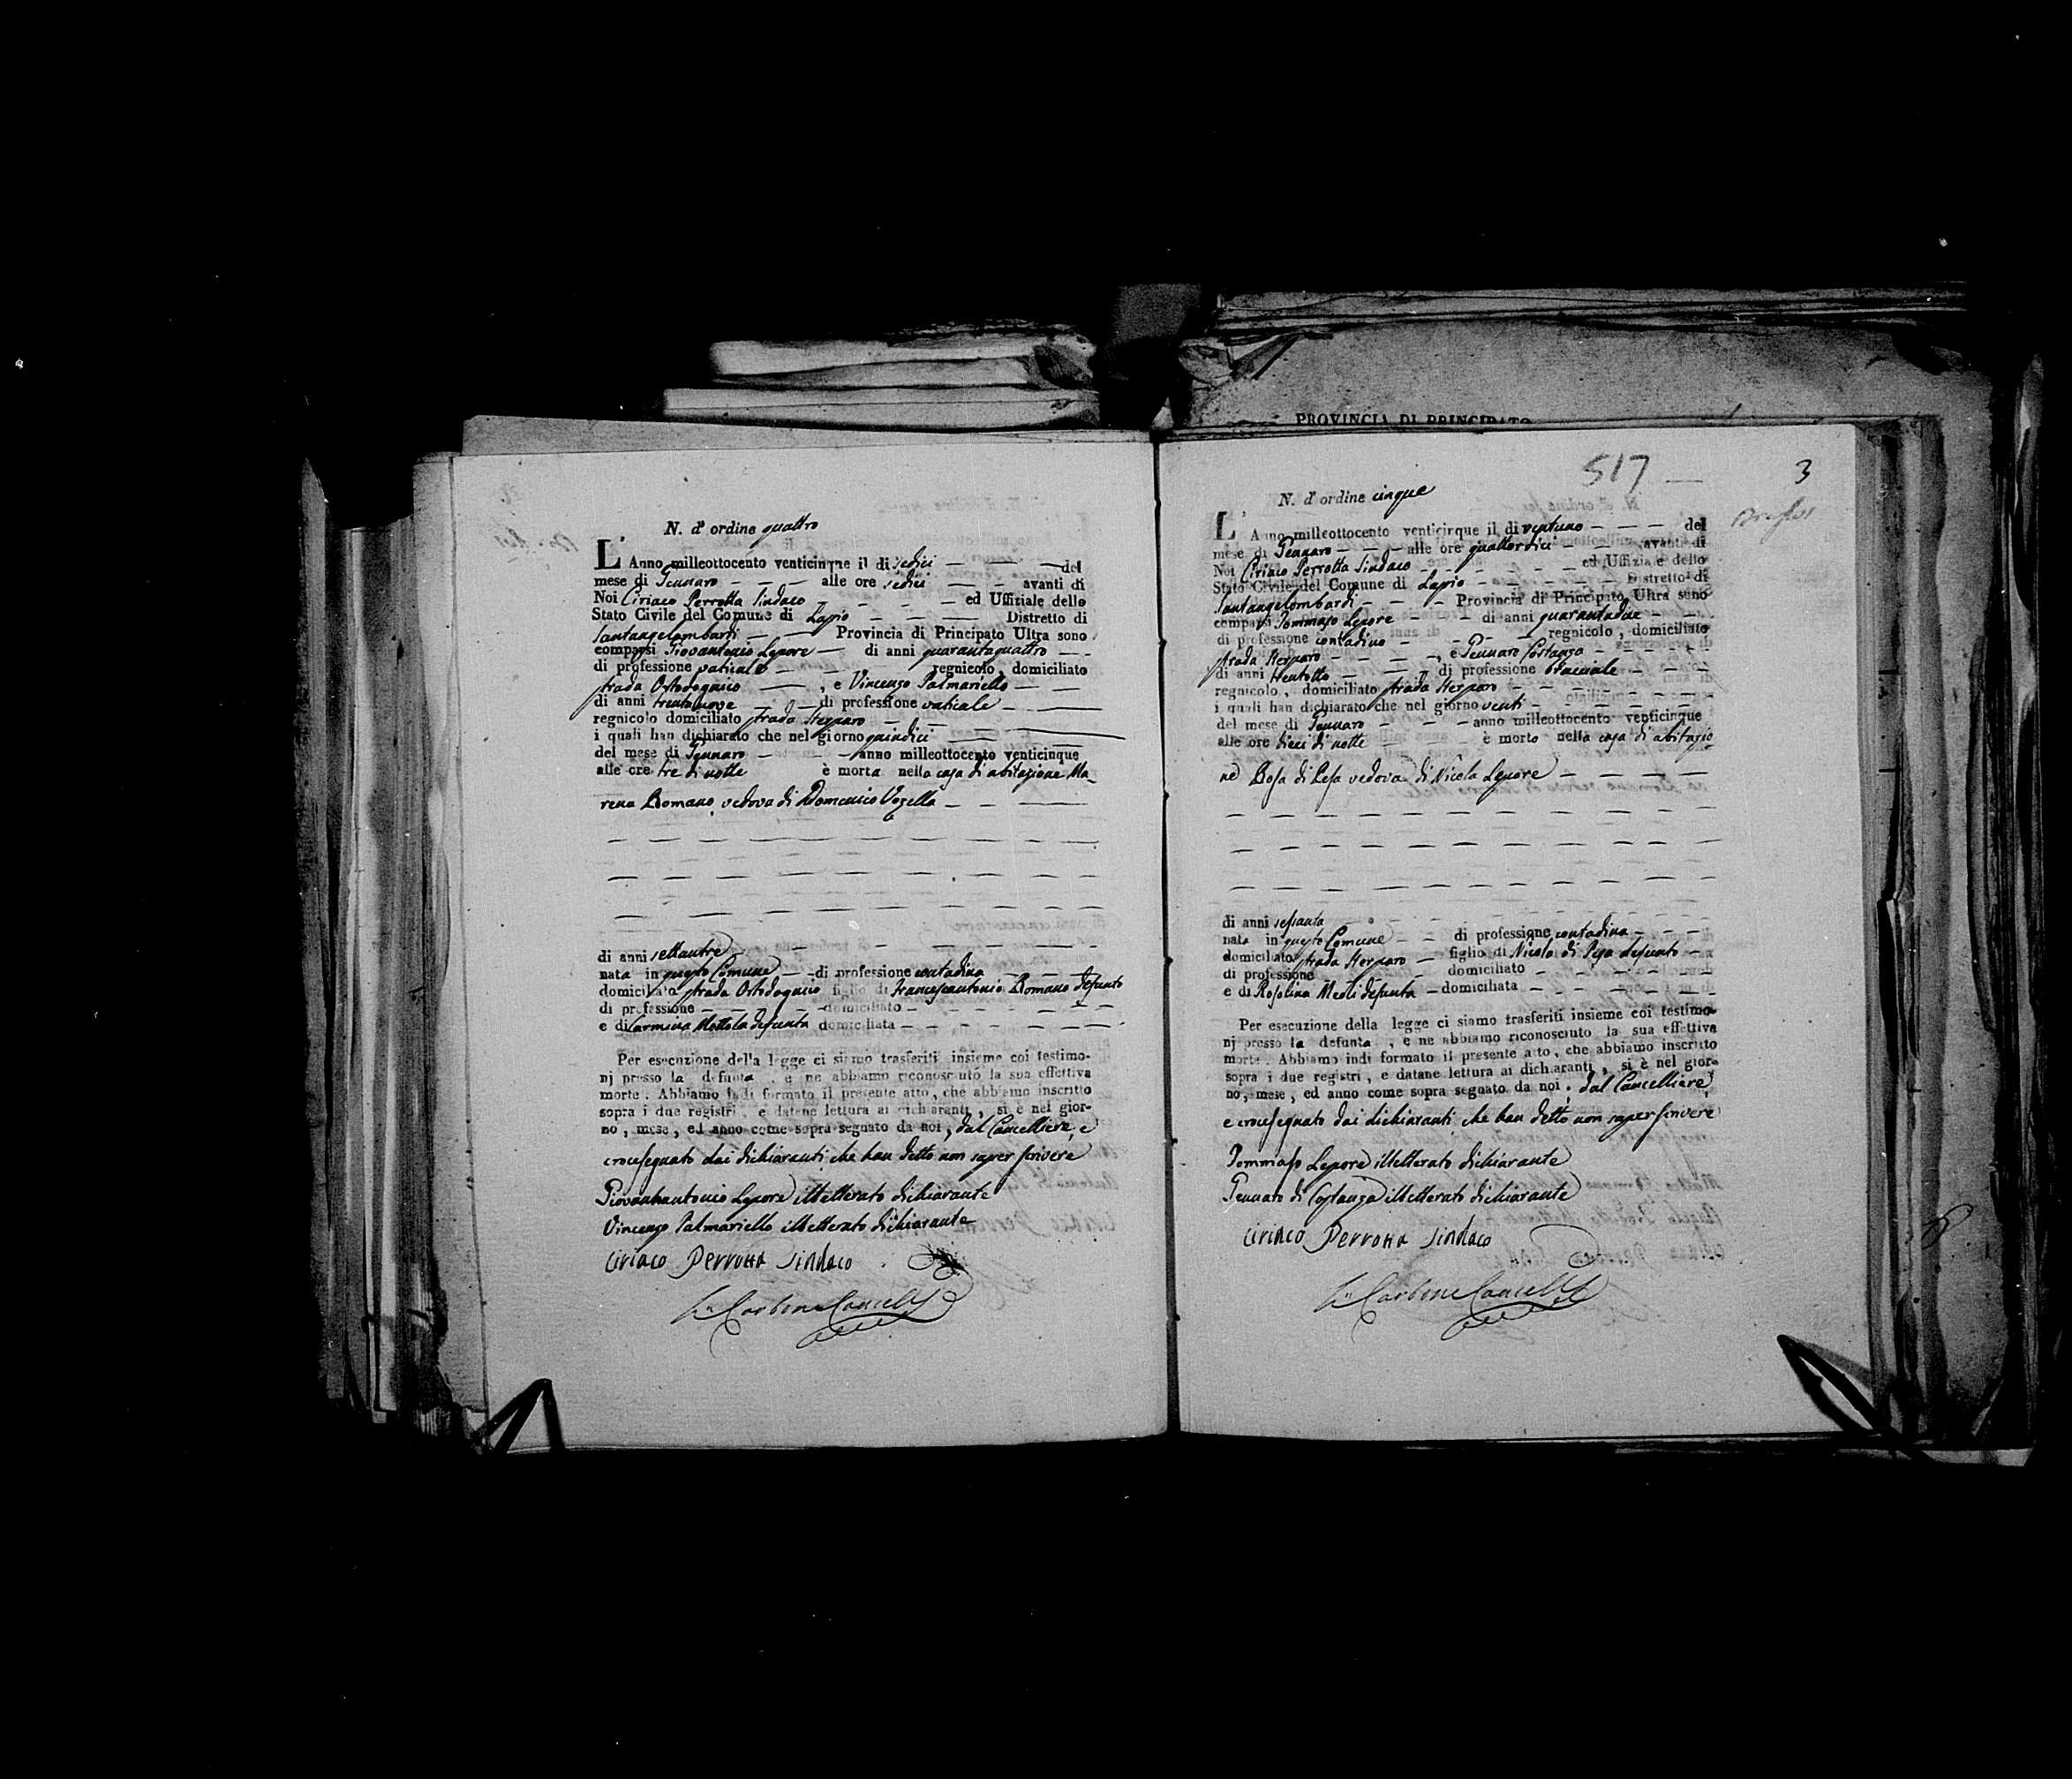 PROVINCIA DI PRINCIPATO
N. d'ordine quattro
L'Anno milleottocento venticinque il di sedici del
mese di Gennaro alle ore sedici avanti di
Noi Ciriaco Perrotta Sindaco ed Uffiziale dello
Stato Civile del Comune di Lapio Distretto di
Santangelombardi Provincia di Principato Ultra sono
comparsi Giovantonio Lepore di anni quarantaquattro
di professione vaticale regnicolo, domiciliato
strada Ortodognico, e Vincenzo Palmariello
di anni trentanove di professione vaticale
regnicolo domiciliato strada Herparo
i quali han dichiarato che nel giorno quindici
del mese di Gennaro anno milleottocento venticinque
alle ore tre di notte è morta nella casa di abitazione Ma-
rena Romano vedova di Domenico Vozella
di anni settantre
nata in questo Comune di professione contadina
domiciliata strada Ortodognico figlia di Francescantonio Romano defunto
di professione domiciliato
e di Carmina Mottola defunta domiciliata
Per esecuzione della legge ci siamo trasferiti insieme coi testimo-
nj presso la defunta, e ne abbiamo riconosciuto la sua effettiva
morte. Abbiamo indi formato il presente atto, che abbiamo inscritto
sopra i due registri, e datene lettura ai dichiaranti, si è nel gior-
no, mese, ed anno come sopra segnato da noi, dal Cancelliere, e
crocesegnato dai dichiaranti che han detto non saper scrivere
Giovanhantonio Lepore illetterato dichiarante
Vincenzo Palmariello illetterato dichiarante
Ciriaco Perrotta Sindaco
Carbone Cancell
517
3
N. d'ordine cinque
L'Anno milleottocento venticinque il di ventuno del
mese di Gennaro alle ore quattordici avanti di
Noi Ciriaco Perrotta Sindaco ed Uffiziale dello
Stato Civile del Comune di Lapio Distretto di
Santangelombardi Provincia di Principato Ultra sono
comparsi Tommaso Lepore di anni quarantadue
di professione contadino regnicolo, domiciliato
strada Herparo, e Gennaro Costanzo
di anni trentotto di professione bracciale
regnicolo, domiciliato strada Herparo
i quali han dichiarato che nel giorno venti
del mese di Gennaro anno milleottocento venticinque
alle ore dieci di notte è morto nella casa di abitazio
ne Rosa di Pesa vedova di Nicola Lepore
di anni sessanta
nata in questo Comune di professione contadina
domiciliato strada Herparo figlio di Nicola di Pesa defunto
di professione domiciliato
e di Rosolina Meoli defunta domiciliata
Per esecuzione della legge ci siamo trasferiti insieme coi testimo-
nj presso la defunta, e ne abbiamo riconosciuto la sua effettiva
morte. Abbiamo indi formato il presente atto, che abbiamo inscritto
sopra i due registri, e datane lettura ai dichiaranti, si è nel gior-
no, mese, ed anno come sopra segnato da noi, dal Cancelliere,
e crocesegnato dai dichiaranti che han detto non saper scrivere
Tommaso Lepore illetterato dichiarante
Gennaro di Costanza illetterato dichiarante
Ciriaco Perrotta Sindaco
Carbone Cancell